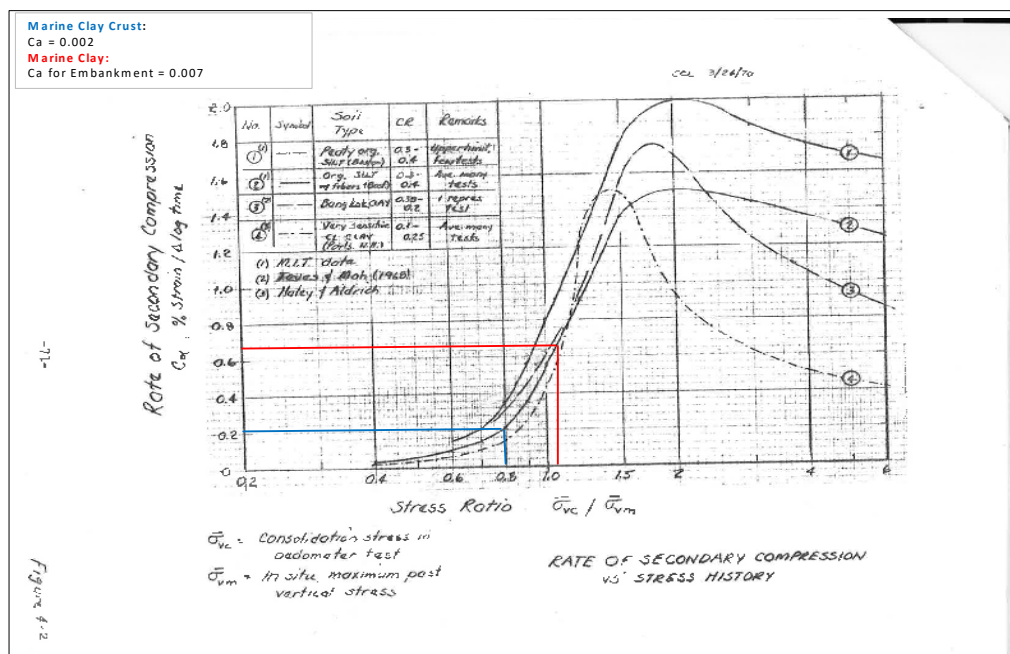 Marine Clay Crust:
Ca = 0.002
Marine Clay:
Ca for Embankment = 0.007
CCL 3/26/70
Rate of Secondary Compression
Cα, % Strain/Δ log time
2.0
1.8
1.6
1.4
1.2
1.0
0.8
0.6
0.4
0.2
0
No. Symbol Soil Type CR Remarks
① (1) Peaty org. SILT (Boston) 0.3-0.4 Upper limit, few tests
② (1) Org. SILT w fibers 0.3-0.4 Ave. many tests
③ (2) Bangkok CLAY 1 repres test
④ (3) Very sensitive CL CLAY (Ports. N.H.) 0.1-0.25 Ave. many tests
(1) M.I.T. data
(2) & Moh (1968)
(3) Haley & Aldrich
①
②
③
④
0.2 0.4 0.6 0.8 1.0 1.5 2 4 6
Stress Ratio σ̄vc / σ̄vm
σ̄vc = Consolidation stress in
oedometer test
σ̄vm = In situ maximum past
vertical stress
RATE OF SECONDARY COMPRESSION
vs STRESS HISTORY
Figure 4-2